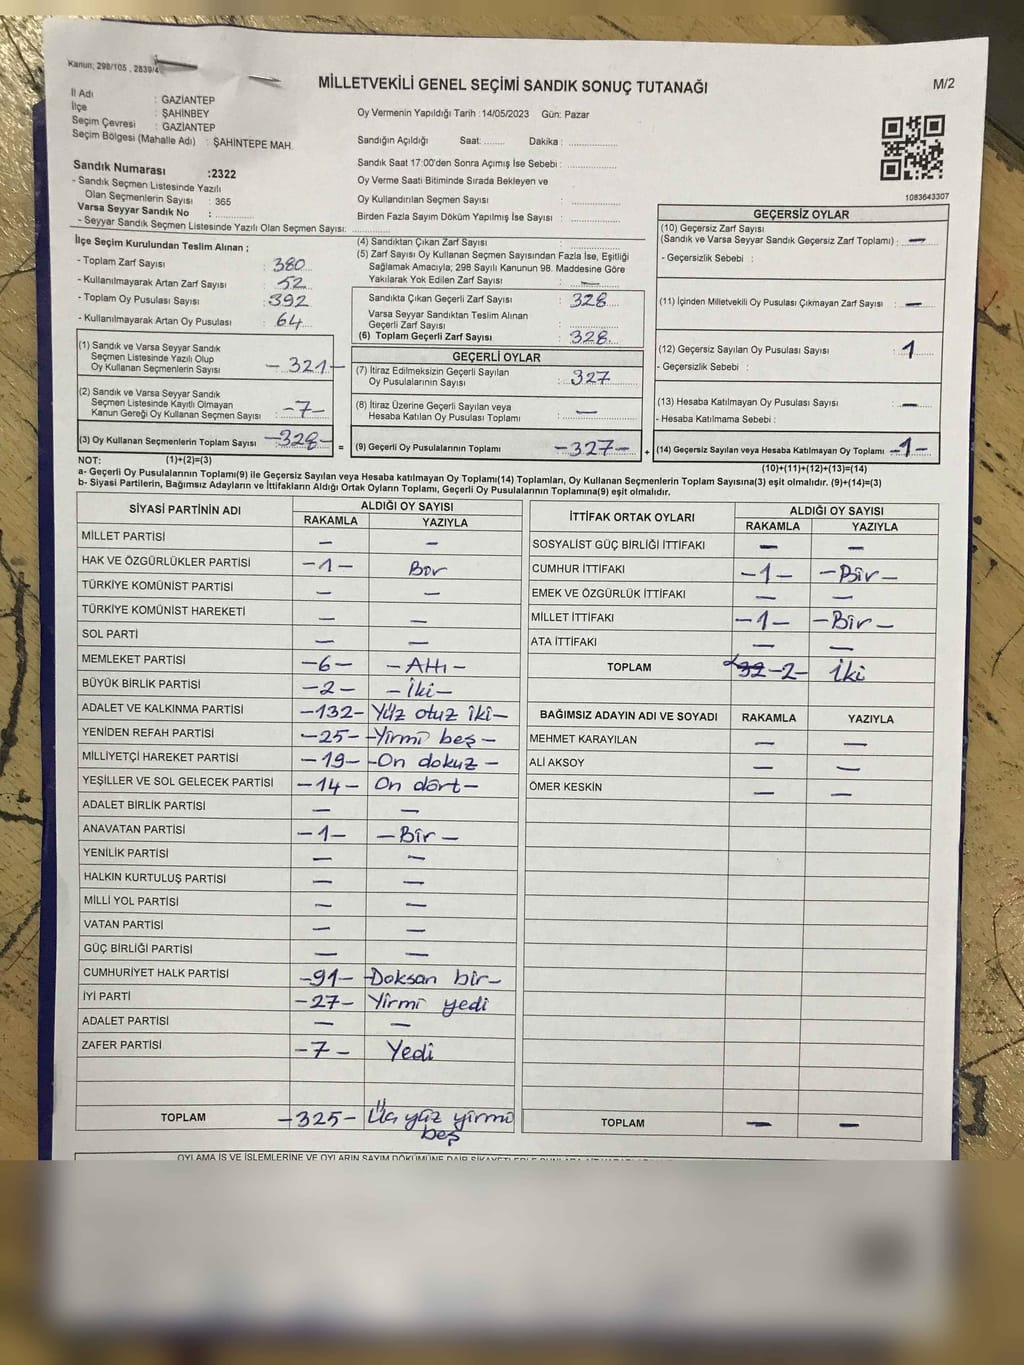 Kanun; 298/105 , 2839/4
MİLLETVEKİLİ GENEL SEÇİMİ SANDIK SONUÇ TUTANAĞI
M/2
İl Adı : GAZİANTEP
İlçe : ŞAHİNBEY
Seçim Çevresi : GAZİANTEP
Seçim Bölgesi (Mahalle Adı) : ŞAHİNTEPE MAH.
Sandık Numarası :2322
- Sandık Seçmen Listesinde Yazılı
Olan Seçmenlerin Sayısı : 365
Varsa Seyyar Sandık No :
- Seyyar Sandık Seçmen Listesinde Yazılı Olan Seçmen Sayısı:
Oy Vermenin Yapıldığı Tarih :14/05/2023 Gün: Pazar
Sandığın Açıldığı Saat: ........ Dakika: ..................
Sandık Saat 17:00'den Sonra Açımış İse Sebebi : ..................
Oy Verme Saati Bitiminde Sırada Bekleyen ve
Oy Kullandırılan Seçmen Sayısı :
Birden Fazla Sayım Döküm Yapılmış İse Sayısı :
1083643307
İlçe Seçim Kurulundan Teslim Alınan ;
- Toplam Zarf Sayısı : 380
- Kullanılmayarak Artan Zarf Sayısı : 52
- Toplam Oy Pusulası Sayısı : 392
- Kullanılmayarak Artan Oy Pusulası : 64
(1) Sandık ve Varsa Seyyar Sandık
Seçmen Listesinde Yazılı Olup
Oy Kullanan Seçmenlerin Sayısı – 321 –
(2) Sandık ve Varsa Seyyar Sandık
Seçmen Listesinde Kayıtlı Olmayan
Kanun Gereği Oy Kullanan Seçmen Sayısı : –7–
(3) Oy Kullanan Seçmenlerin Toplam Sayısı –328–
(4) Sandıktan Çıkan Zarf Sayısı :
(5) Zarf Sayısı Oy Kullanan Seçmen Sayısından Fazla İse, Eşitliği
Sağlamak Amacıyla; 298 Sayılı Kanunun 98. Maddesine Göre
Yakılarak Yok Edilen Zarf Sayısı : —
Sandıkta Çıkan Geçerli Zarf Sayısı : 328
Varsa Seyyar Sandıktan Teslim Alınan
Geçerli Zarf Sayısı :
(6) Toplam Geçerli Zarf Sayısı : 328
GEÇERLİ OYLAR
(7) İtiraz Edilmeksizin Geçerli Sayılan
Oy Pusulalarının Sayısı : 327
(8) İtiraz Üzerine Geçerli Sayılan veya
Hesaba Katılan Oy Pusulası Toplamı : —
= (9) Geçerli Oy Pusulalarının Toplamı –327–
GEÇERSİZ OYLAR
(10) Geçersiz Zarf Sayısı
(Sandık ve Varsa Seyyar Sandık Geçersiz Zarf Toplamı) : —
- Geçersizlik Sebebi :
(11) İçinden Milletvekili Oy Pusulası Çıkmayan Zarf Sayısı : —
(12) Geçersiz Sayılan Oy Pusulası Sayısı : 1
- Geçersizlik Sebebi :
(13) Hesaba Katılmayan Oy Pusulası Sayısı : —
- Hesaba Katılmama Sebebi :
+ (14) Geçersiz Sayılan veya Hesaba Katılmayan Oy Toplamı –1–
NOT: (1)+(2)=(3)
(10)+(11)+(12)+(13)=(14)
a- Geçerli Oy Pusulalarının Toplamı(9) ile Geçersiz Sayılan veya Hesaba katılmayan Oy Toplamı(14) Toplamları, Oy Kullanan Seçmenlerin Toplam Sayısına(3) eşit olmalıdır. (9)+(14)=(3)
b- Siyasi Partilerin, Bağımsız Adayların ve İttifakların Aldığı Ortak Oyların Toplamı, Geçerli Oy Pusulalarının Toplamına(9) eşit olmalıdır.
SİYASİ PARTİNİN ADI ALDIĞI OY SAYISI
RAKAMLA YAZIYLA
MİLLET PARTİSİ — —
HAK VE ÖZGÜRLÜKLER PARTİSİ –1– Bir
TÜRKİYE KOMÜNİST PARTİSİ — —
TÜRKİYE KOMÜNİST HAREKETİ — —
SOL PARTİ — —
MEMLEKET PARTİSİ –6– –Altı–
BÜYÜK BİRLİK PARTİSİ –2– –İki–
ADALET VE KALKINMA PARTİSİ –132– Yüz otuz iki–
YENİDEN REFAH PARTİSİ –25– –Yirmi beş–
MİLLİYETÇİ HAREKET PARTİSİ –19– –On dokuz–
YEŞİLLER VE SOL GELECEK PARTİSİ –14– On dört–
ADALET BİRLİK PARTİSİ — —
ANAVATAN PARTİSİ –1– –Bir–
YENİLİK PARTİSİ — —
HALKIN KURTULUŞ PARTİSİ — —
MİLLİ YOL PARTİSİ — —
VATAN PARTİSİ — —
GÜÇ BİRLİĞİ PARTİSİ — —
CUMHURİYET HALK PARTİSİ –91– –Doksan bir–
İYİ PARTİ –27– Yirmi yedi
ADALET PARTİSİ — —
ZAFER PARTİSİ –7– Yedi
TOPLAM –325– Üç yüz yirmi
beş
İTTİFAK ORTAK OYLARI ALDIĞI OY SAYISI
RAKAMLA YAZIYLA
SOSYALİST GÜÇ BİRLİĞİ İTTİFAKI — —
CUMHUR İTTİFAKI –1– –Bir–
EMEK VE ÖZGÜRLÜK İTTİFAKI — —
MİLLET İTTİFAKI –1– –Bir–
ATA İTTİFAKI — —
TOPLAM –2– İki
BAĞIMSIZ ADAYIN ADI VE SOYADI RAKAMLA YAZIYLA
MEHMET KARAYILAN — —
ALİ AKSOY — —
ÖMER KESKİN — —
TOPLAM — —